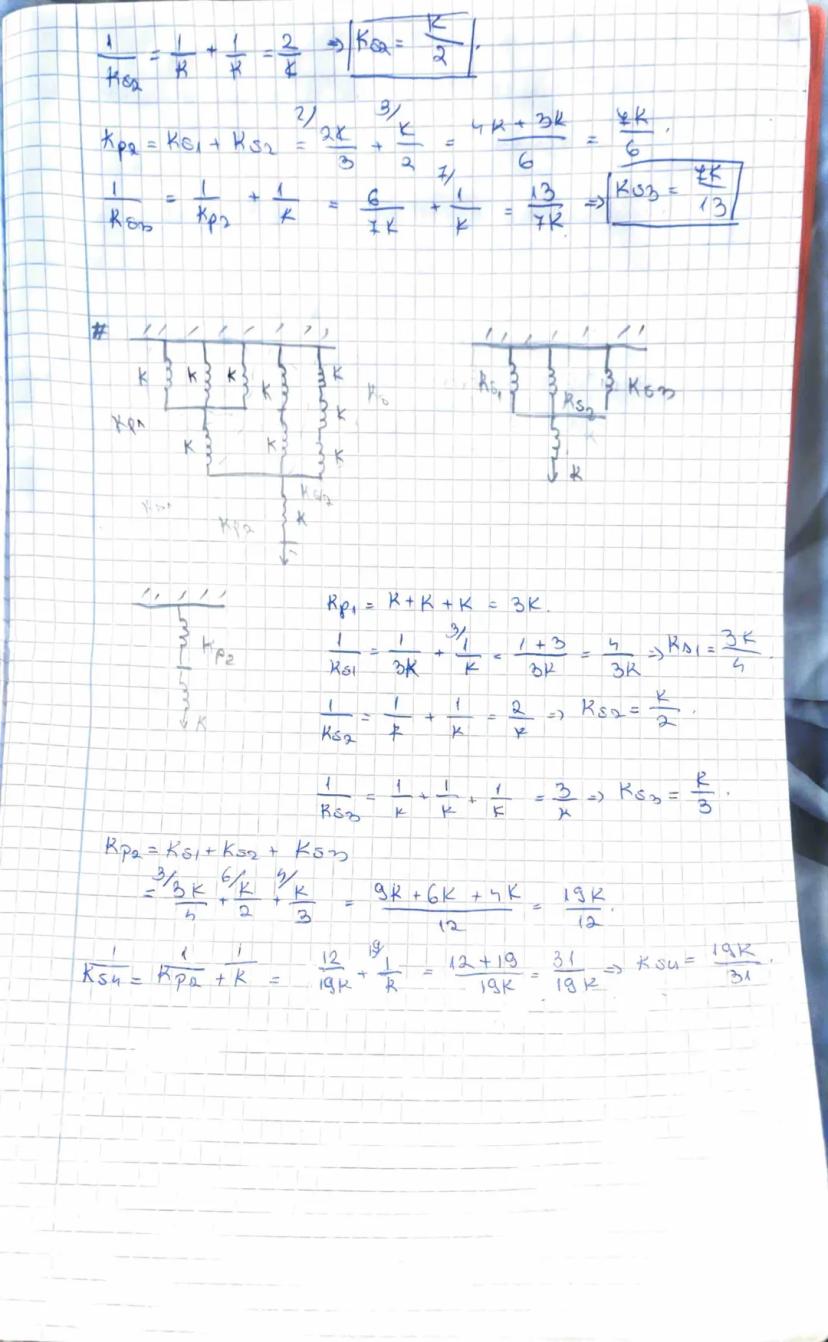 1/Ks2 = 1/K + 1/K = 2/K => Ks2 = K/2.
Kp2 = Ks1 + Ks2 = 2/ 2K/3 + 3/ K/2 = 4K + 3K/6 = 7K/6.
1/Ks3 = 1/Kp2 + 1/K = 6/7K + 7/ 1/K = 13/7K => Ks3 = 7K/13
#
K K K K K
Ks1 Ks2 Ks3
Kp1 K
K K K
K
Ks2
Kp2 K
Kp2
K
Kp1 = K + K + K = 3K.
1/Ks1 = 1/3K + 3/ 1/K = 1+3/3K = 4/3K => Ks1 = 3K/4.
1/Ks2 = 1/K + 1/K = 2/K => Ks2 = K/2.
1/Ks3 = 1/K + 1/K + 1/K = 3/K => Ks3 = K/3.
Kp2 = Ks1 + Ks2 + Ks3
= 3/ 3K/4 + 6/ K/2 + 4/ K/3 = 9K + 6K + 4K/12 = 19K/12.
1/Ks4 = 1/Kp2 + 1/K = 12/19K + 19/ 1/K = 12+19/19K = 31/19K => Ks4 = 19K/31.